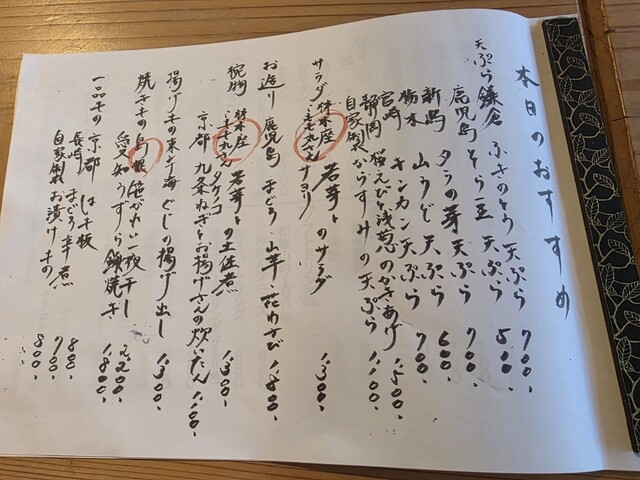 本日のおすすめ
天ぷら 鎌倉 ふきのとう 天ぷら 700.
鹿児島 そら豆 天ぷら 500.
新潟 タラの芽 天ぷら 700.
栃木 山うど 天ぷら 600.
宮崎 キンカン 天ぷら 700.
静岡 桜えびと浅葱のかきあげ 1,500.
自家製 からすみの天ぷら 1,100.
サラダ 林本座 サヨリ
若芽のサラダ 1,300.
お造り 鹿児島 まぐろ 山芋 花わさび 1,800.
椀物 林本座 タケノコ
若芽の土佐煮 1,300.
京都 九条ねぎとお揚げさんの炊いたん 1,100.
揚げもの 東シナ海 ぐじの揚げ出し 1,300.
焼きもの 島根 一夜干し 2,200.
愛知 うずら 鎌焼き 1,800.
一品もの 京都 は 800.
長崎 まぐろ辛煮 700.
自家製 お漬けもの 800.